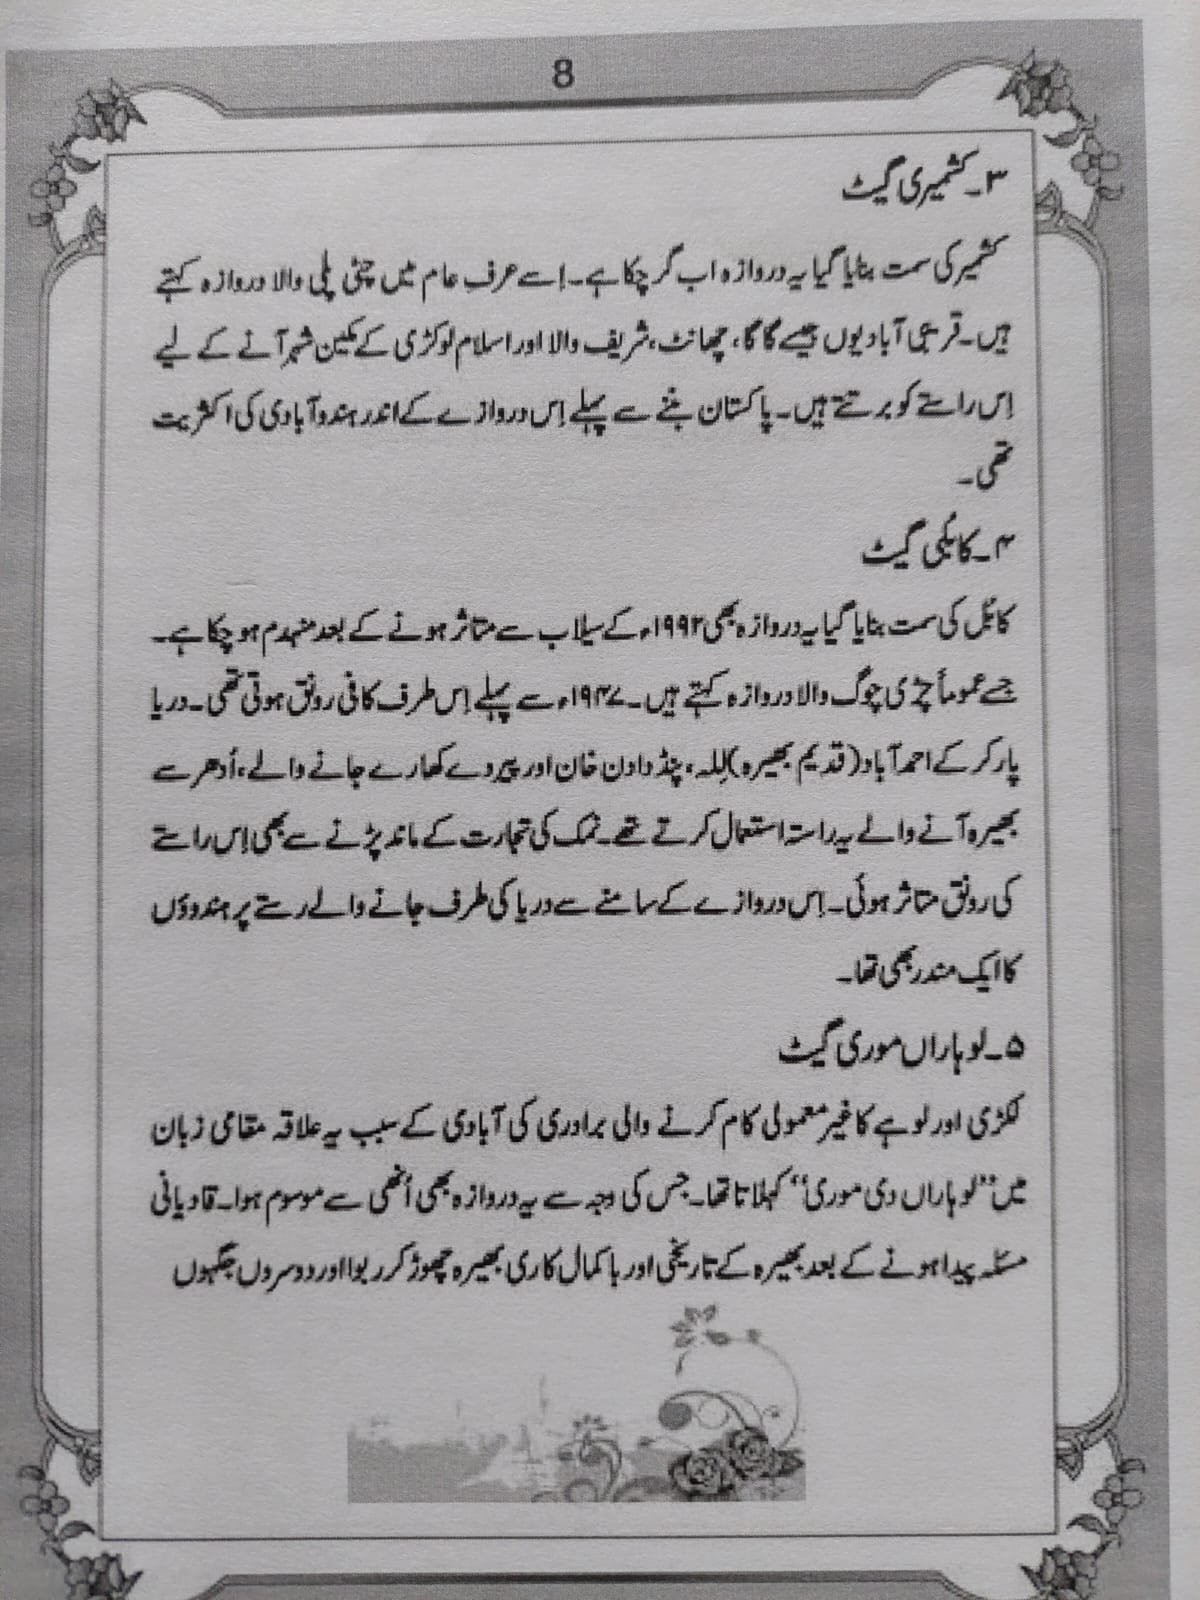 8
۳۔ کشمیری گیٹ
کشمیر کی سمت بنایا گیا یہ دروازہ اب گر چکا ہے۔ اِسے عرف عام میں چٹی پلی والا دروازہ کہتے
ہیں۔ قریبی آبادیوں جیسے گاگا، چھانٹ، شریف والا اور اسلام لوکڑی کے مکین شہر آنے کے لیے
اِس راستے کو برتتے ہیں۔ پاکستان بننے سے پہلے اِس دروازے کے اندر ہندو آبادی کی اکثریت
تھی۔
۴۔ کابُلی گیٹ
کابُل کی سمت بنایا گیا یہ دروازہ بھی ۱۹۹۲ء کے سیلاب سے متاثر ہونے کے بعد منہدم ہو چکا ہے۔
جسے عموماً چڑی چوگ والا دروازہ کہتے ہیں۔ ۱۹۴۷ء سے پہلے اِس طرف کافی رونق ہوتی تھی۔ دریا
پار کر کے احمد آباد (قدیم بھیرہ) لِلہ، پنڈ دادن خان اور پیر دے کھارے جانے والے، اُدھر سے
بھیرہ آنے والے یہ راستہ استعمال کرتے تھے۔ نمک کی تجارت کے ماند پڑنے سے بھی اِس راستے
کی رونق متاثر ہوئی۔ اِس دروازے کے سامنے سے دریا کی طرف جانے والے رستے پر ہندوؤں
کا ایک مندر بھی تھا۔
۵۔ لوہاراں موری گیٹ
لکڑی اور لوہے کا غیر معمولی کام کرنے والی برادری کی آبادی کے سبب یہ علاقہ مقامی زبان
میں ”لوہاراں دی موری“ کہلاتا تھا۔ جس کی وجہ سے یہ دروازہ بھی اُنھی سے موسوم ہوا۔ قادیانی
مسئلہ پیدا ہونے کے بعد بھیرہ کے تاریخی اور باکمال کاری بھیرہ چھوڑ کر ربوا اور دوسروں جگہوں